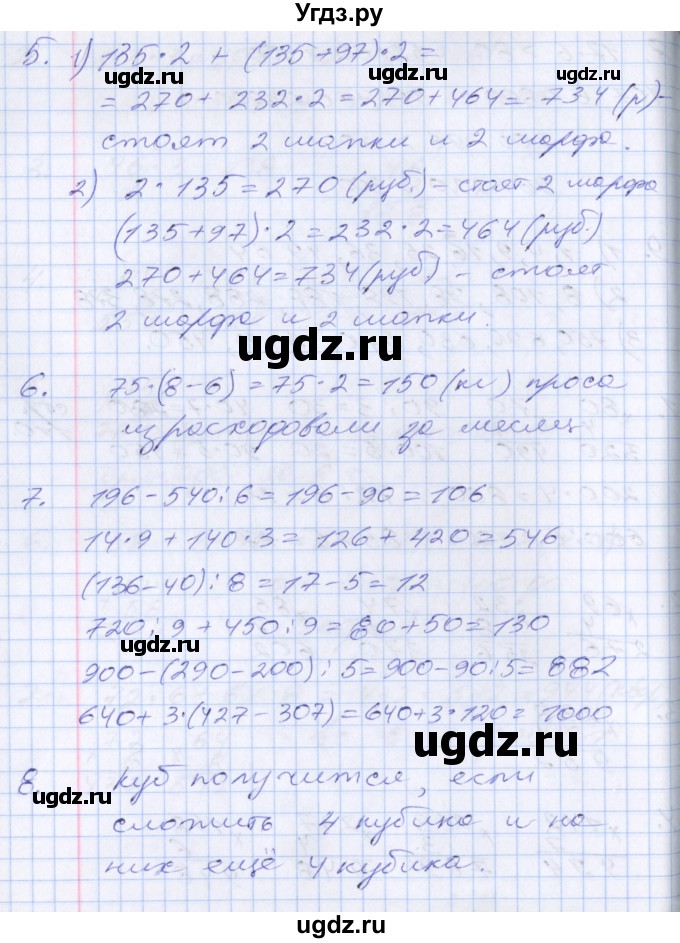 Угдз.ру
5. 1) 135·2 + (135+97)·2 =
ugdz.ru ugdz.ru
= 270 + 232·2 = 270 + 464 = 734 (р) -
стоят 2 шапки и 2 шарфа.
2) 2·135 = 270 (руб.) - стоят 2 шарфа
ugdz.ru
(135+97)·2 = 232·2 = 464 (руб.)
270 + 464 = 734 (руб.) - стоят
2 шарфа и 2 шапки.
ugdz.ru
6. 75·(8-6) = 75·2 = 150 (кг) проса
израсходовали за месяц
ugdz.ru
7. 196 - 540:6 = 196 - 90 = 106
14·9 + 140·3 = 126 + 420 = 546
(136-40):8 = 17-5 = 12
720:9 + 450:9 = 80+50 = 130
ugdz.ru
900-(290-200):5 = 900-90:5 = 882
640+3·(427-307) = 640+3·120 = 1000
ugdz.ru
8 куб получится, если
ugdz.ru
сложить 4 кубика и на
них ещё 4 кубика.
ugdz.ru